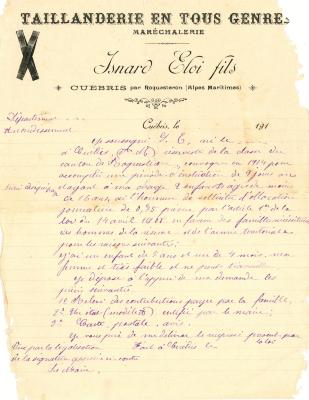 TAILLANDERIE EN TOUS GENRES
MARÉCHALERIE
Isnard Eloi fils
CUEBRIS par Roquesteron (Alpes Maritimes)
Cuébris, le 191
Département
Je soussigné I. E, né le
à Cuébris, réserviste de la classe
canton de Roquesteron, convoqué en 1914 pour
accomplir une période d'instruction de 9 jours
ayant à ma charge 2 enfants âgés de moins
de 16 ans, ai l'honneur de solliciter l'allocation
journalière de 0,75 prévue par l'article
loi du 14 avril 1908 en faveur des familles nécessiteuses
des hommes de la réserve et de l'armée territoriale
pour les raisons suivantes;
j'ai un enfant de 2 ans et un de 4 mois, ma
femme est très faible et ne peut travailler
Je dépose à l'appui de ma demande les
pièces suivantes
1º Relevé des contributions payées par la famille,
2º Un état (modèle) certifié par le maire;
3º Carte postale, avis.
Je vous prie de me délivrer le récépissé prescrit par
la loi
Vu pour la légalisation Fait à Cuébris le
de la signature apposée ci-contre
Le Maire